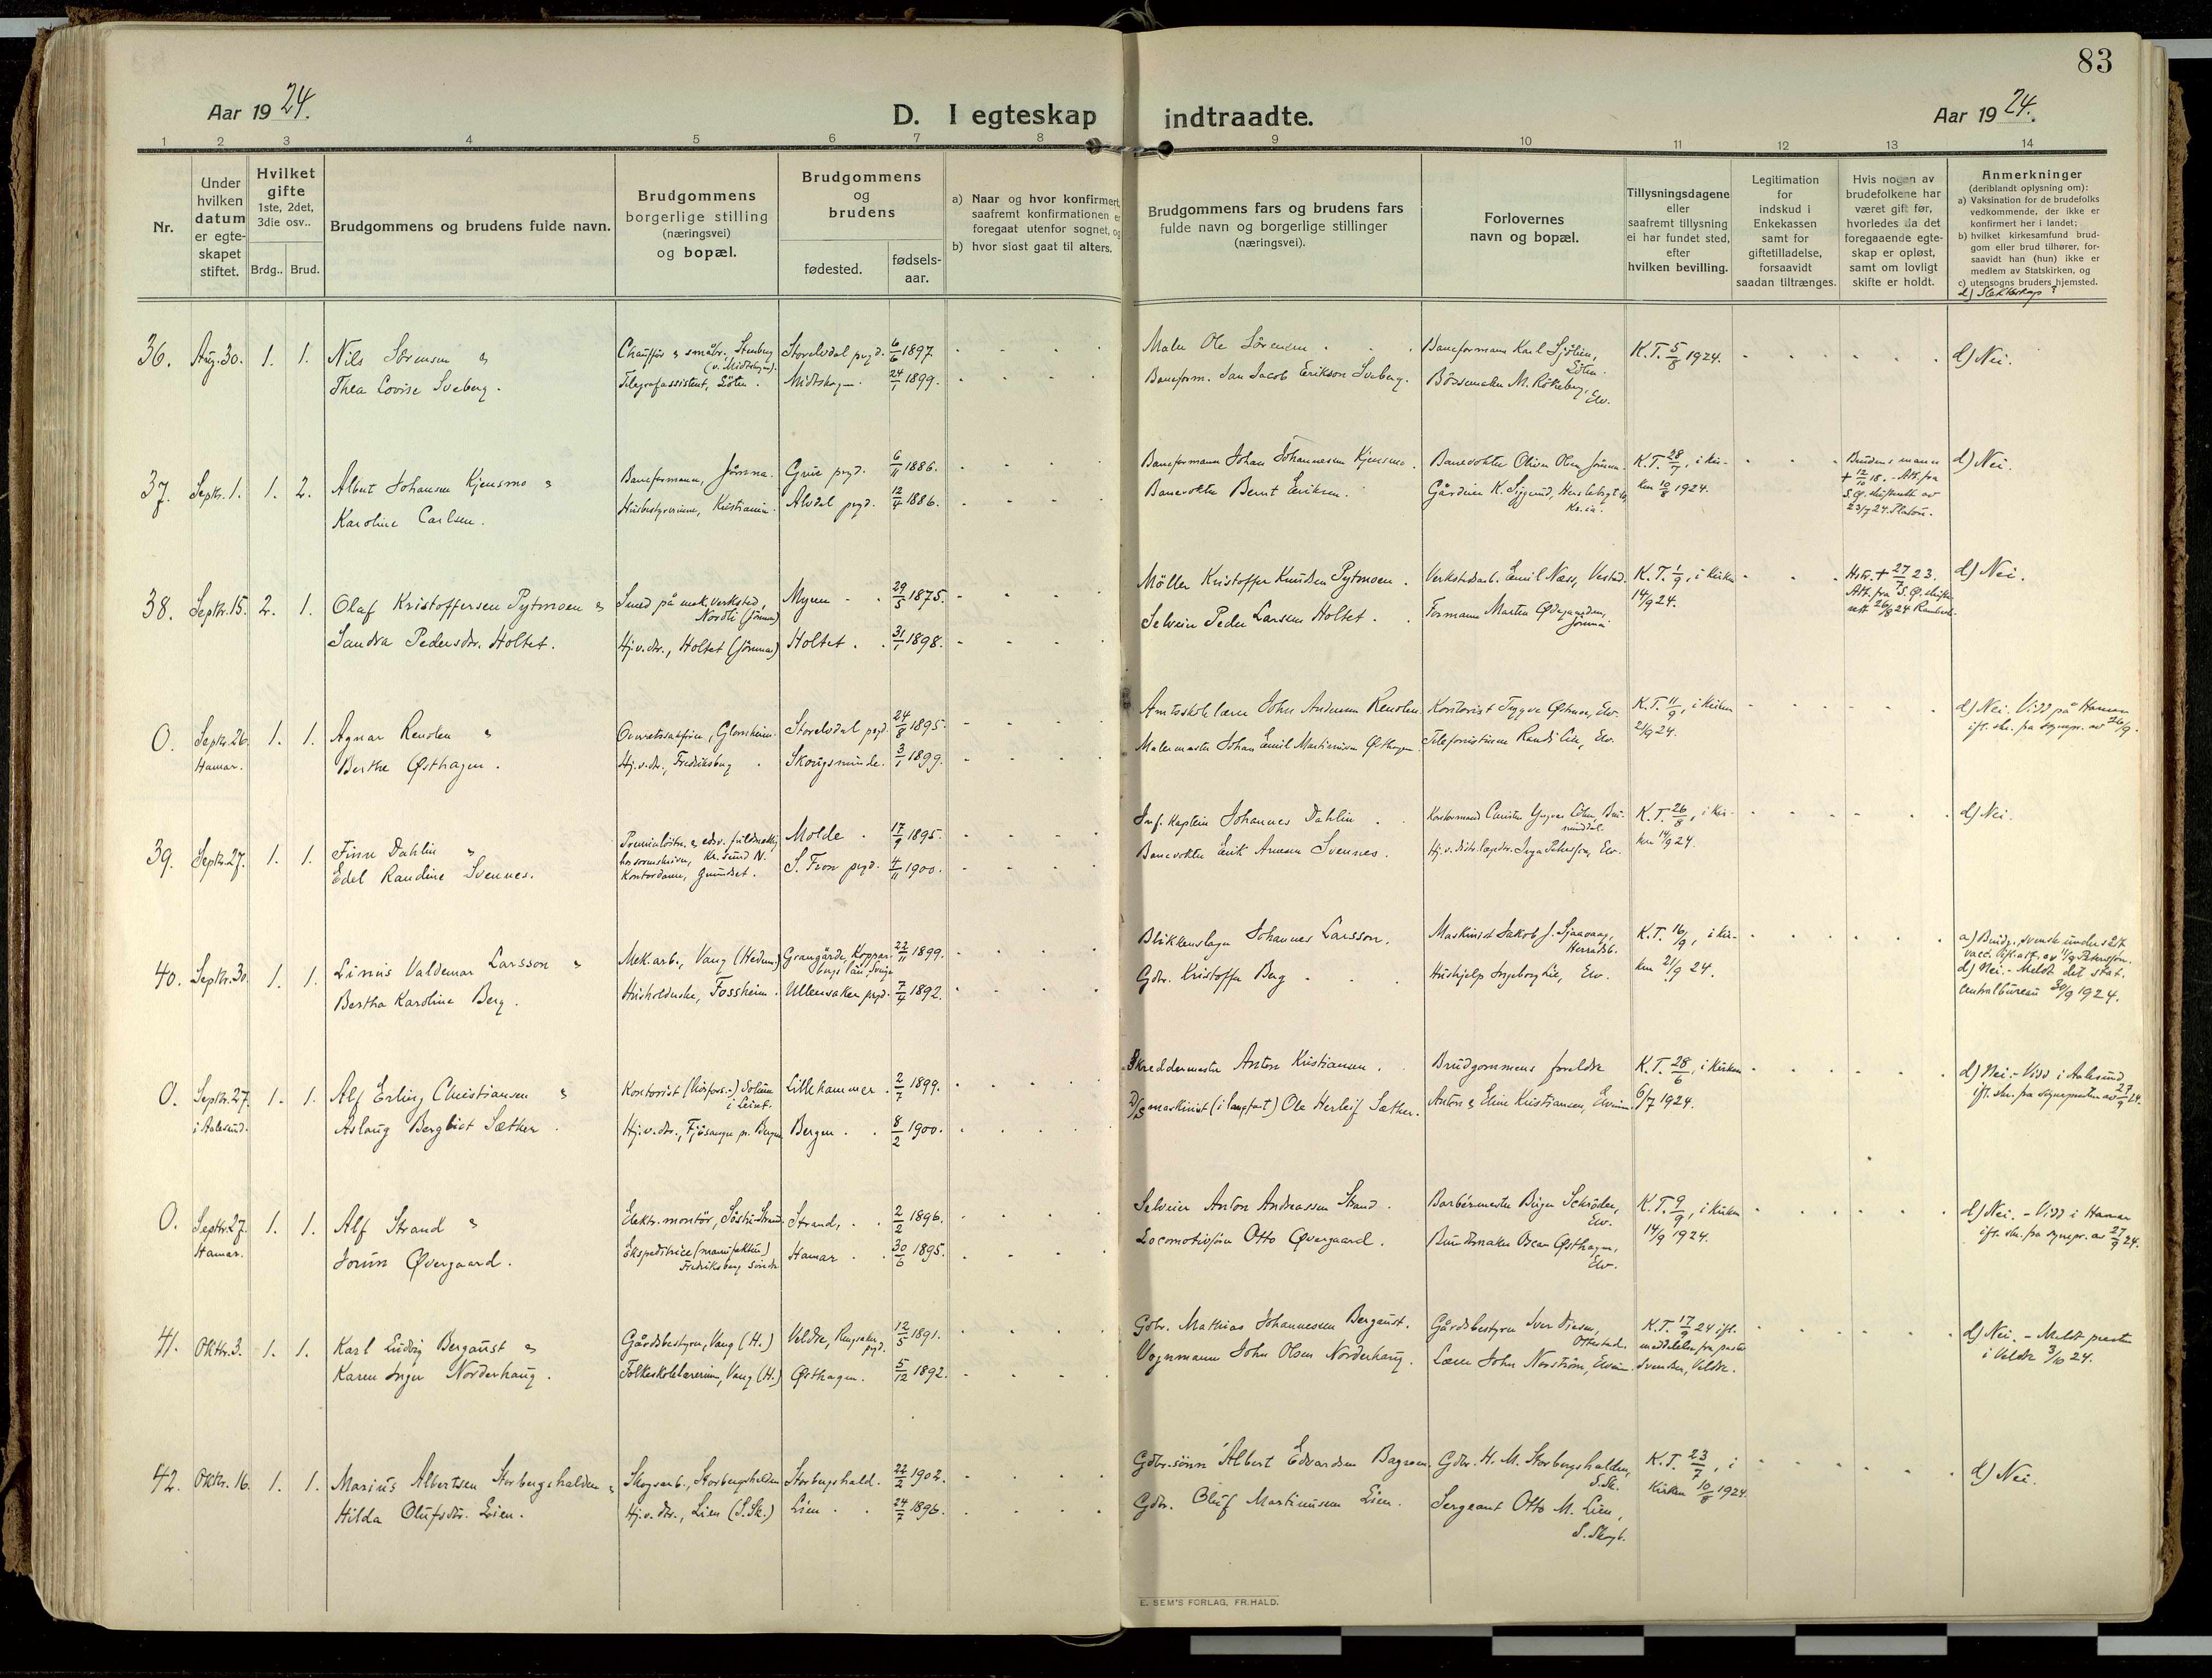 83
Aar 1924.
D. I egteskap indtraadte.
Aar 1924.
1 2 3 4 5 6 7 8 9 10 11 12 13 14
Nr.
Under hvilken datum er egte-skapet stiftet.
Hvilket gifte 1ste, 2det, 3die osv..
Brdg.. Brud.
Brudgommens og brudens fulde navn.
Brudgommens borgerlige stilling (næringsvei) og bopæl.
Brudgommens og brudens
fødested.
fødsels-aar.
a) Naar og hvor konfirmert,
saafremt konfirmationen er
foregaat utenfor sognet, og
b) hvor sidst gaat til alters.
Brudgommens fars og brudens fars
fulde navn og borgerlige stillinger
(næringsvei).
Forlovernes
navn og bopæl.
Tillysningsdagene
eller
saafremt tillysning
ei har fundet sted,
efter
hvilken bevilling.
Legitimation
for
indskud i
Enkekassen
samt for
giftetilladelse,
forsaavidt
saadan tiltrænges.
Hvis nogen av
brudefolkene har
været gift før,
hvorledes da det
foregaaende egte-
skap er opløst,
samt om lovligt
skifte er holdt.
Anmerkninger
(deriblandt oplysning om):
a) Vaksination for de brudefolks
vedkommende, der ikke er
konfirmert her i landet;
b) hvilket kirkesamfund brud-
gom eller brud tilhører, for-
saavidt han (hun) ikke er
medlem av Statskirken, og
c) utensogns bruders hjemsted.
d) Slektskap?
36. Aug. 30. 1. 1. Nils Sørensen &
Thea Lovise Sveberg.
Storelvdal prgd. 6/6 1897.
Telegrafassistent, Löten. Midtskogen. 24/1 1899.
Maler Ole Sörensen
Baneform. Jan Jacob Erikson Sveberg.
Baneformann Karl Sjölien, Löten.
Bössemaker M. Kötkeberg, Elv.
K.T. 5/8 1924.
d) Nei.
37. Septr. 1. 1. 2. Albert Johansen Kjensmo &
Karoline Carlsen.
Baneformann, Jömna. Grue prgd. 6/11 1886.
Husbestyrerinne, Kristiania. Alvdal prgd. 12/4 1886.
Baneformann Johan Johannesen Kjensmo.
Banevokter Bernt Eriksen.
Banevokter Oliver Olsen, Jömna.
K.T. 28/7, i kir-
ken 10/8 1924.
Brudens mann
+ 12/10 18. - Att. fra
S.Ø. skifterett av
23/7 24.
d) Nei.
38. Septr. 15. 2. 1. Olaf Kristoffersen Pytmoen &
Sandra Pedersdtr. Holtet.
Smed på mek. verksted,
Nordli (Jömna) Myren 29/5 1875.
Hj.v. dtr., Holtet (Jömna) Holtet. 31/1 1898.
Möller Kristoffer Knudsen Pytmoen.
Selveier Peder Larsen Holtet.
Verkstedarb. Emil Næss, Vestad.
Formann Martin Ødegaarden, Jömna
K.T. 1/9, i kirken
14/9 24.
Hstr. + 27/7 23.
Att. fra S.Ø. skifte-
rett 26/8 24
d) Nei.
0. Septr. 26. Hamar. 1. 1. Agnar Renolen &
Berthe Østhagen.
Storelvdal prgd. 24/8 1895.
Hj.v. dtr., Fredriksberg. 3/1 1899.
Amtsskolelærer John Andersen Renolen
Malermester Johan Emil Martinius Østhagen.
Kontorist Trygve Østmoe, Elv.
Telefonistinne Randi Lie, Elv.
K.T. 11/9, i kirken
21/9 24.
d) Nei. Vidd på Hamar
ift. skr. fra sognepr. av 26/9.
39. Septr. 27. 1. 1. Finn Dahlin &
Edel Randine Svennes.
Premierlöitn. & edsv. fuldmektig
Kr.sund N.
Kontordame, Grundset.
Molde 17/9 1895.
S. Fron prgd. 4/11 1900.
Inf. kaptein Johannes Dahlin
Banevokter Erik Arnesen Svennes.
Hj.v. distr.lægedtr. Inga Petersson, Elv.
K.T. 26/8, i kir-
ken 14/9 24.
d) Nei.
40. Septr. 30. 1. 1. Linus Valdemar Larsson &
Bertha Karoline Berg.
Mek. arb., Vang (Hedm.) Grangärde, Koppar-
bergs län, Sverige 22/11 1899.
Husholderske, Fossheim. Ullensaker prgd. 7/4 1892.
Blikkenslager Johannes Larsson.
Gdbr. Kristoffer Berg
Maskinist Jakob J. Sjaavaag, Herradsb.
Hushjelp Ingeborg Lie, Elv.
K.T. 16/9, i kir-
ken 21/9 24.
a) Brudg. svensk undersått
vacc. ift. att. av 11/9 Petersson.
d) Nei. - Meldt det stat.
Centralbureau 30/9 1924.
0. Septr. 27. i Aalesund. 1. 1. Alf Erling Christiansen &
Aslaug Bergliot Sæther.
Lillehammer. 2/7 1899.
Hj.v. dtr., Fjösanger pr. Bergen Bergen 8/2 1900.
Skreddermester Anton Kristiansen.
D/S maskinist (i langfart) Ole Herleif Sæther.
Brudgommens foreldre
Anton & Eline Kristiansen, Elverum
K.T. 28/6, i kirken
6/7 1924.
d) Nei. - Vidd i Aalesund
ift. skr. fra sognepresten av 27/9 24.
0. Septr. 27. Hamar. 1. 1. Alf Strand &
Jorun Øvergaard.
Elektr. montör, Söstu-Strand Strand, 2/2 1896.
Ekspeditrice (manufaktur)
Fredriksberg söndre Hamar 30/6 1895.
Selveier Anton Andreassen Strand.
Locomotivförer Otto Øvergaard.
Barbérmester Birger Schröder, Elv.
Buntmaker Oscar Østhagen, Elv.
K.T. 9/9, i kirken
14/9 1924.
d) Nei. - Vidd i Hamar
ift. skr. fra sognepr. av 27/9 24.
41. Oktbr. 3. 1. 1. Karl Ludvig Bergaust &
Karen Inger Norderhaug.
Gårdsbestyrer, Vang (H.) Veldre, Ringsaker prgd. 12/5 1891.
Folkeskolelærerinne, Vang (H.) Østhagen. 5/12 1892.
Gdbr. Mathias Johannessen Bergaust.
Vognmann John Olsen Norderhaug.
Gårdsbestyrer Iver Diesen, Ottestad.
Lærer John Norström, Elverum
K.T. 17/9 24 ift.
meddelelse fra pastor
Svendsen, Veldre.
d) Nei. - Meldt presten
i Veldre 3/10 24.
42. Oktbr. 16. 1. 1. Marius Albertsen Storbergshalden &
Hilda Olufsdtr. Lien.
Skogsarb., Storbergshalden Storbergshald. 22/2 1902.
Hj.v. dtr., Lien (S.Sk.) Lien 24/7 1896.
Gdbr.sönn Albert Edvardsen
Gdbr. Oluf Martinusen Lien.
Gdbr. H. M. Storbergshalden, S.Sk.
Sergeant Otto M. Lien, S. Skogb.
K.T. 23/7, i
kirken 10/8 1924.
d) Nei.
E. SEM'S FORLAG, FR.HALD.